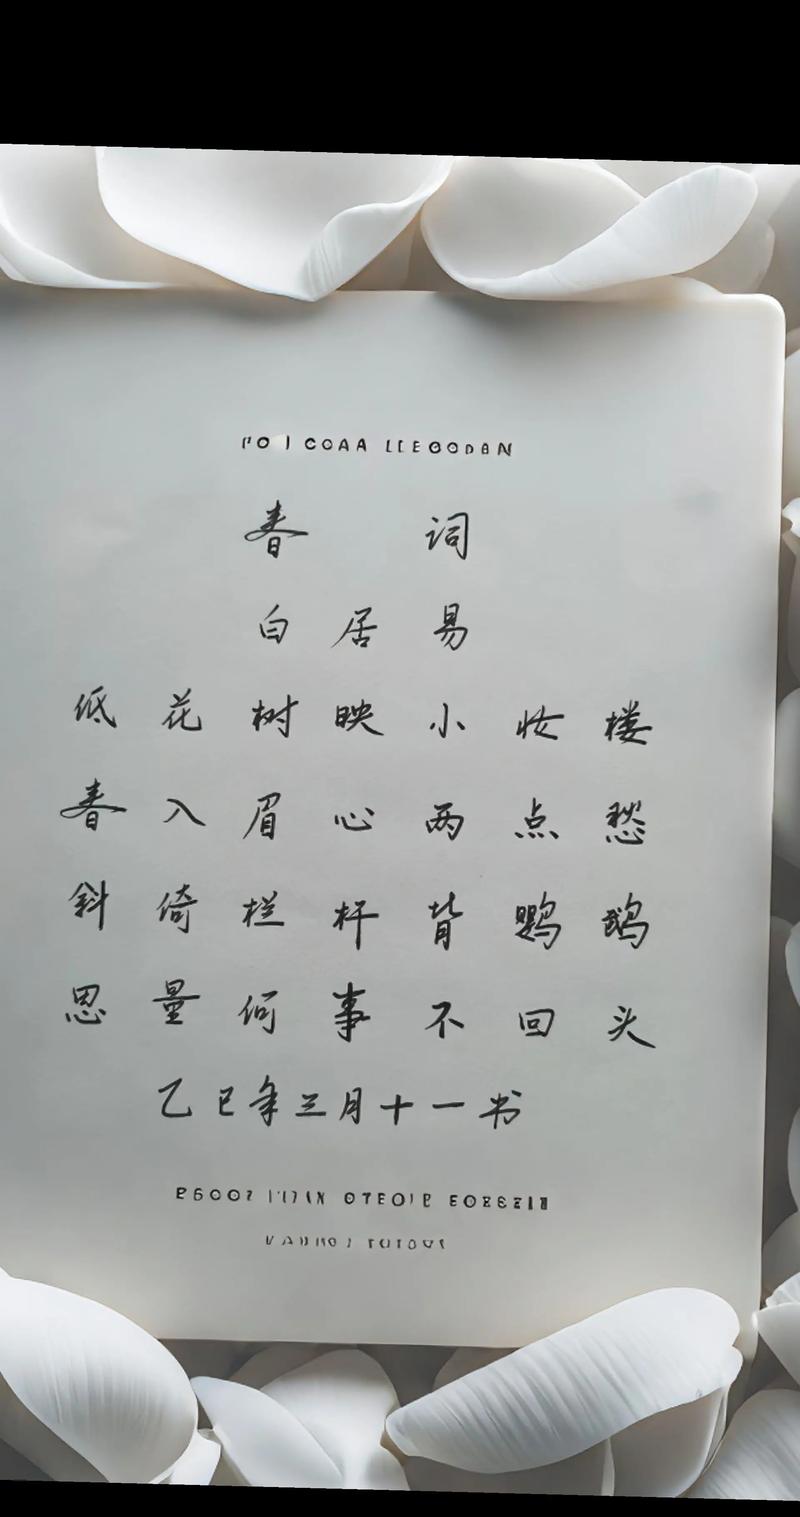 春 词
白居易
低花树映小妆楼
春入眉心两点愁
斜倚栏杆背鹦鹉
思量何事不回头
乙巳年三月十一书